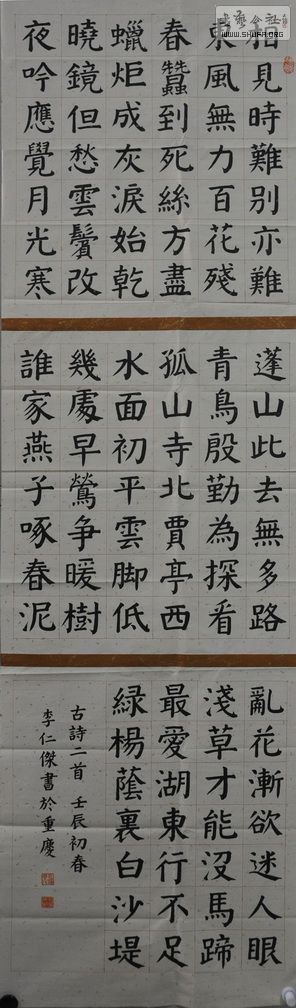 書藝公社
WWW.SHUFA.ORG
相見時難別亦難
東風無力百花殘
春蠶到死絲方盡
蠟炬成灰淚始乾
曉鏡但愁雲鬢改
夜吟應覺月光寒
蓬山此去無多路
青鳥殷勤為探看
孤山寺北賈亭西
水面初平雲脚低
幾處早鶯爭暖樹
誰家燕子啄春泥
亂花漸欲迷人眼
淺草才能沒馬蹄
最愛湖東行不足
緑楊蔭裏白沙堤
古詩二首 壬辰初春
李仁傑書於重慶